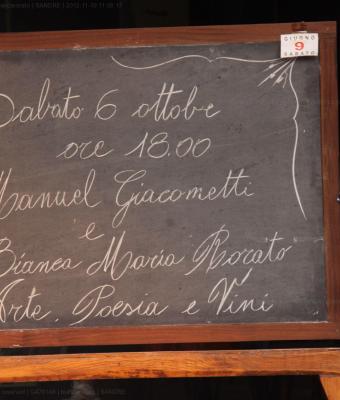 GIORNO
9
SABATO
Sabato 6 ottobre
ore 18.00
Manuel Giacometti
e
Bianca Maria Rorato
Arte, Poesia e Vini